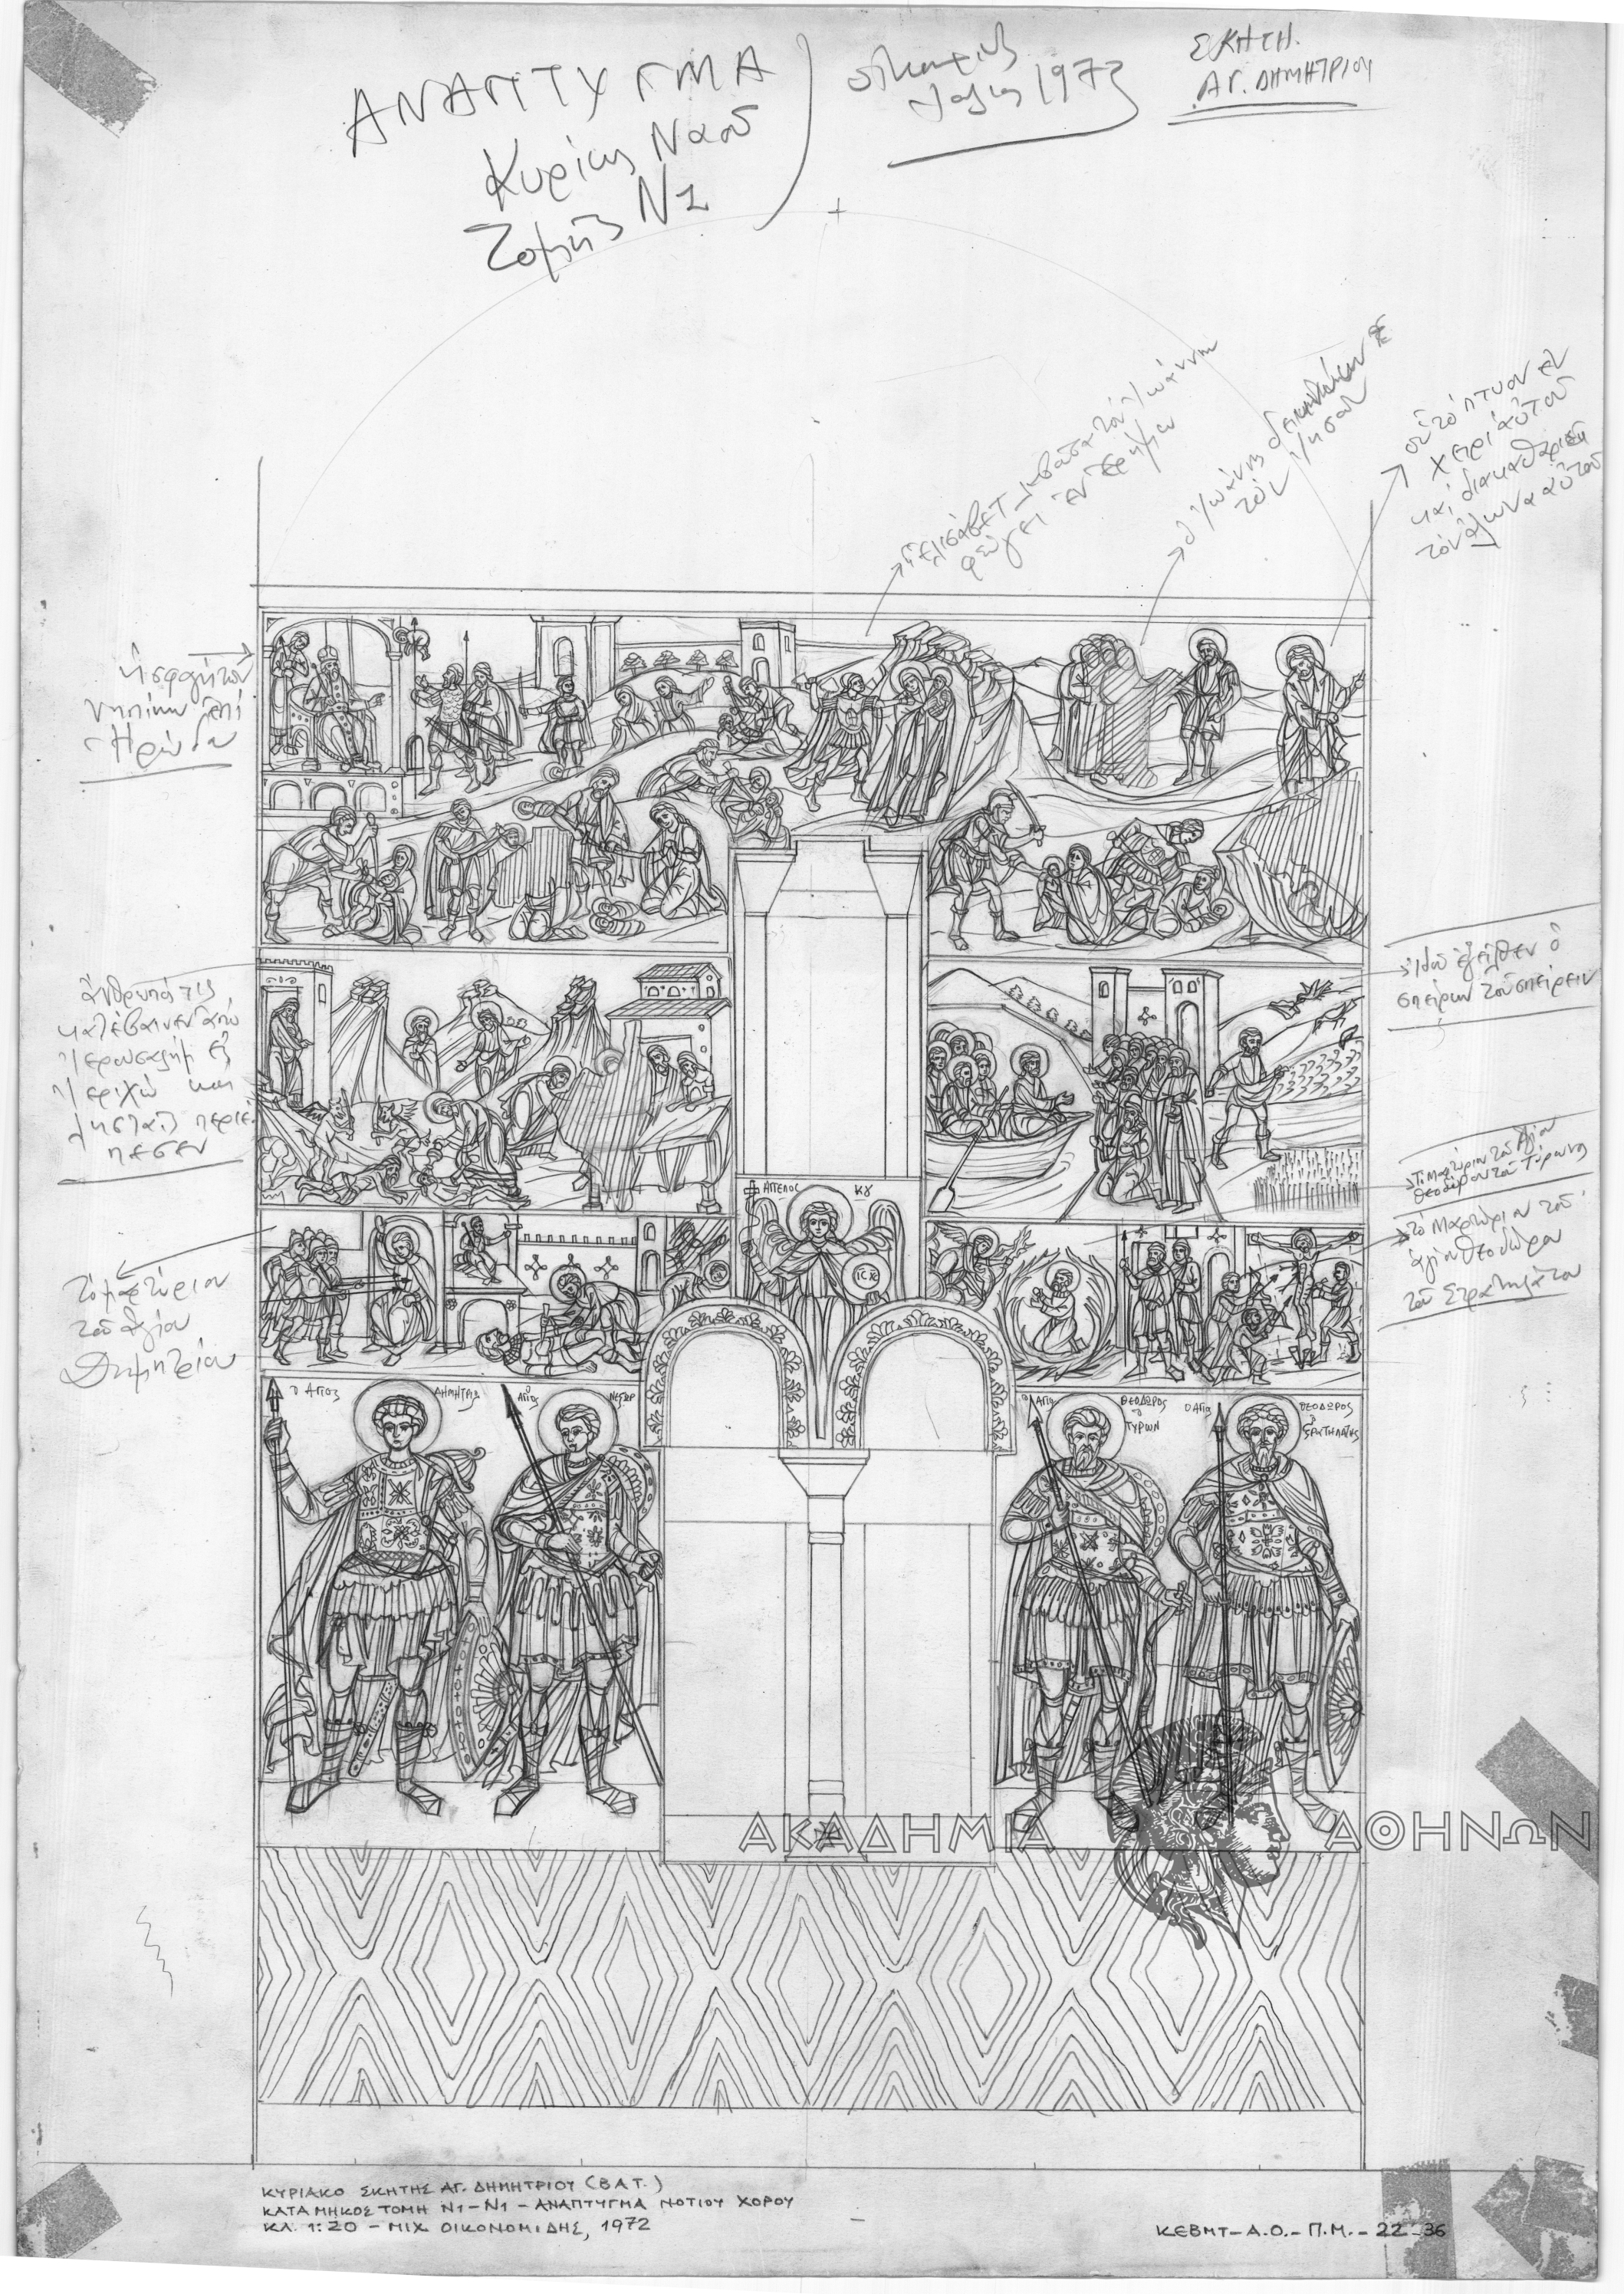 ΑΝΑΠΤΥΓΜΑ
Κυρίως Ναοῦ
Τομῆς Ν1
1973
ΣΚΗΤΗ
ΑΓ. ΔΗΜΗΤΡΙΟΥ
ἡ Ἐλισάβετ τὸν Ἰωάννην
φεύγει ἐν τῇ ἐρήμῳ
ὁ Ἰωάννης
τὸν Ἰησοῦν
οὗ τὸ πτυον ἐν
χειρὶ αὐτοῦ
καὶ διακαθαριεῖ
τὸν ἅλωνα αὐτοῦ
ἡ σφαγὴ τῶν
νηπίων ἐπὶ
Ἡρώδου
ἄνθρωπός τις
κατέβαινεν ἀπὸ
Ἱερουσαλὴμ εἰς
Ἱεριχώ καὶ
λησταῖς περιέ
πεσεν
ἰδοὺ ἐξῆλθεν ὁ
σπείρων τοῦ σπείρειν
Τὸ Μαρτύριον τοῦ Ἁγίου
Θεοδώρου τοῦ Τύρωνος
τὸ Μαρτύριον τοῦ
ἁγίου Θεοδώρου
τοῦ Στρατηλάτου
Τὸ μαρτύριον
τοῦ Ἁγίου
Δημητρίου
ΑΓΓΕΛΟΣ ΚΥ
ΙC XC
Ο ΑΓΙΟΣ ΔΗΜΗΤΡΙΟΣ
Ο ΑΓΙΟΣ ΝΕΣΤΩΡ
Ο ΑΓΙΟΣ ΘΕΟΔΩΡΟΣ
Ο
ΤΥΡΩΝ
Ο ΑΓΙΟΣ ΘΕΟΔΩΡΟΣ
Ο
ΣΤΡΑΤΗΛΑΤΗΣ
ΑΚΑΔΗΜΙΑ ΑΘΗΝΩΝ
ΚΥΡΙΑΚΟ ΣΚΗΤΗΣ ΑΓ. ΔΗΜΗΤΡΙΟΥ (ΒΑΤ.)
ΚΑΤΑ ΜΗΚΟΣ ΤΟΜΗ Ν1-Ν1 - ΑΝΑΠΤΥΓΜΑ ΝΟΤΙΟΥ ΧΟΡΟΥ
ΚΛ. 1:20 - ΜΙΧ. ΟΙΚΟΝΟΜΙΔΗΣ, 1972
ΚΕΒΜΤ-Α.Ο.-Π.Μ.-22-36